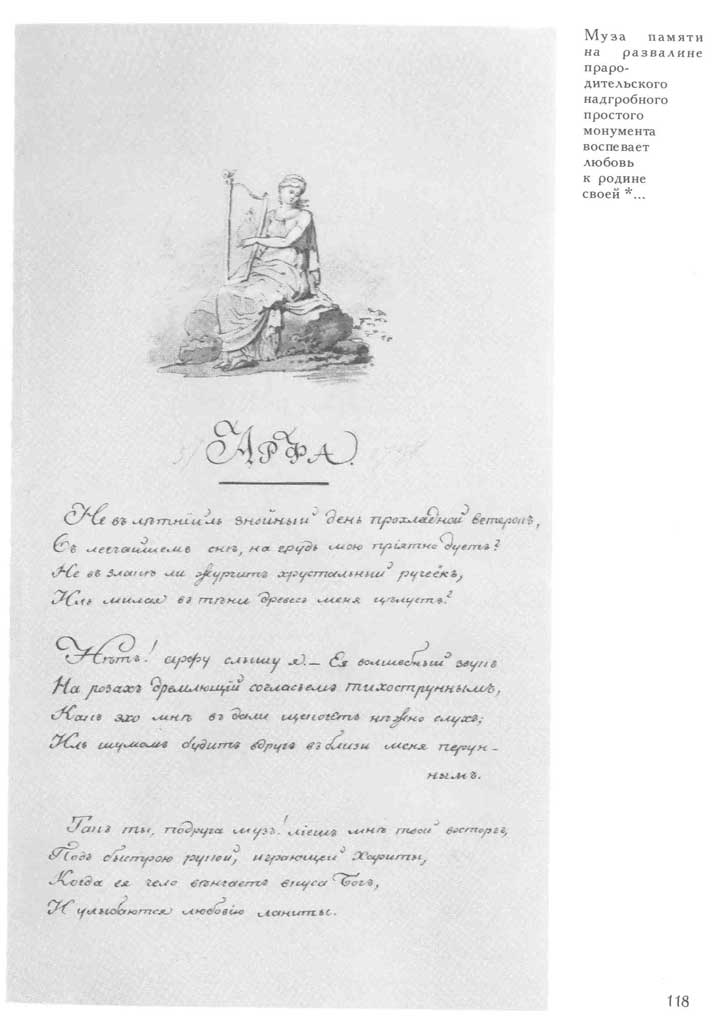 Муза памяти
на развалине
праро-
дительского
надгробного
простого
монумента
воспевает
любовь
к родине
своей *...
АРФА.
Не въ лѣтнїй ль знойный день прохладной ветерокъ,
Въ легчайшемъ снѣ, на грудь мою прїятно дуетъ?
Не въ злакѣ ли журчитъ хрустальный ручеёкъ,
Иль милая въ тѣни древесъ меня цѣлуетъ?
Нѣтъ! арфу слышу я. — Ея волшебный звукъ
На розахъ дремлющїй согласьемъ тихоструннымъ,
Какъ эхо мнѣ въ дали щепочетъ нѣжно слухъ;
Иль шумомъ будитъ вдругъ въ близи меня перун-
нымъ.
Такъ ты, подруга музъ! лїешь мнѣ твой восторгъ,
Подъ быстрою рукой, играющей Хариты,
Когда ея чело вѣнчаетъ вкуса Богъ,
И улыбаются любовїю ланиты.
118